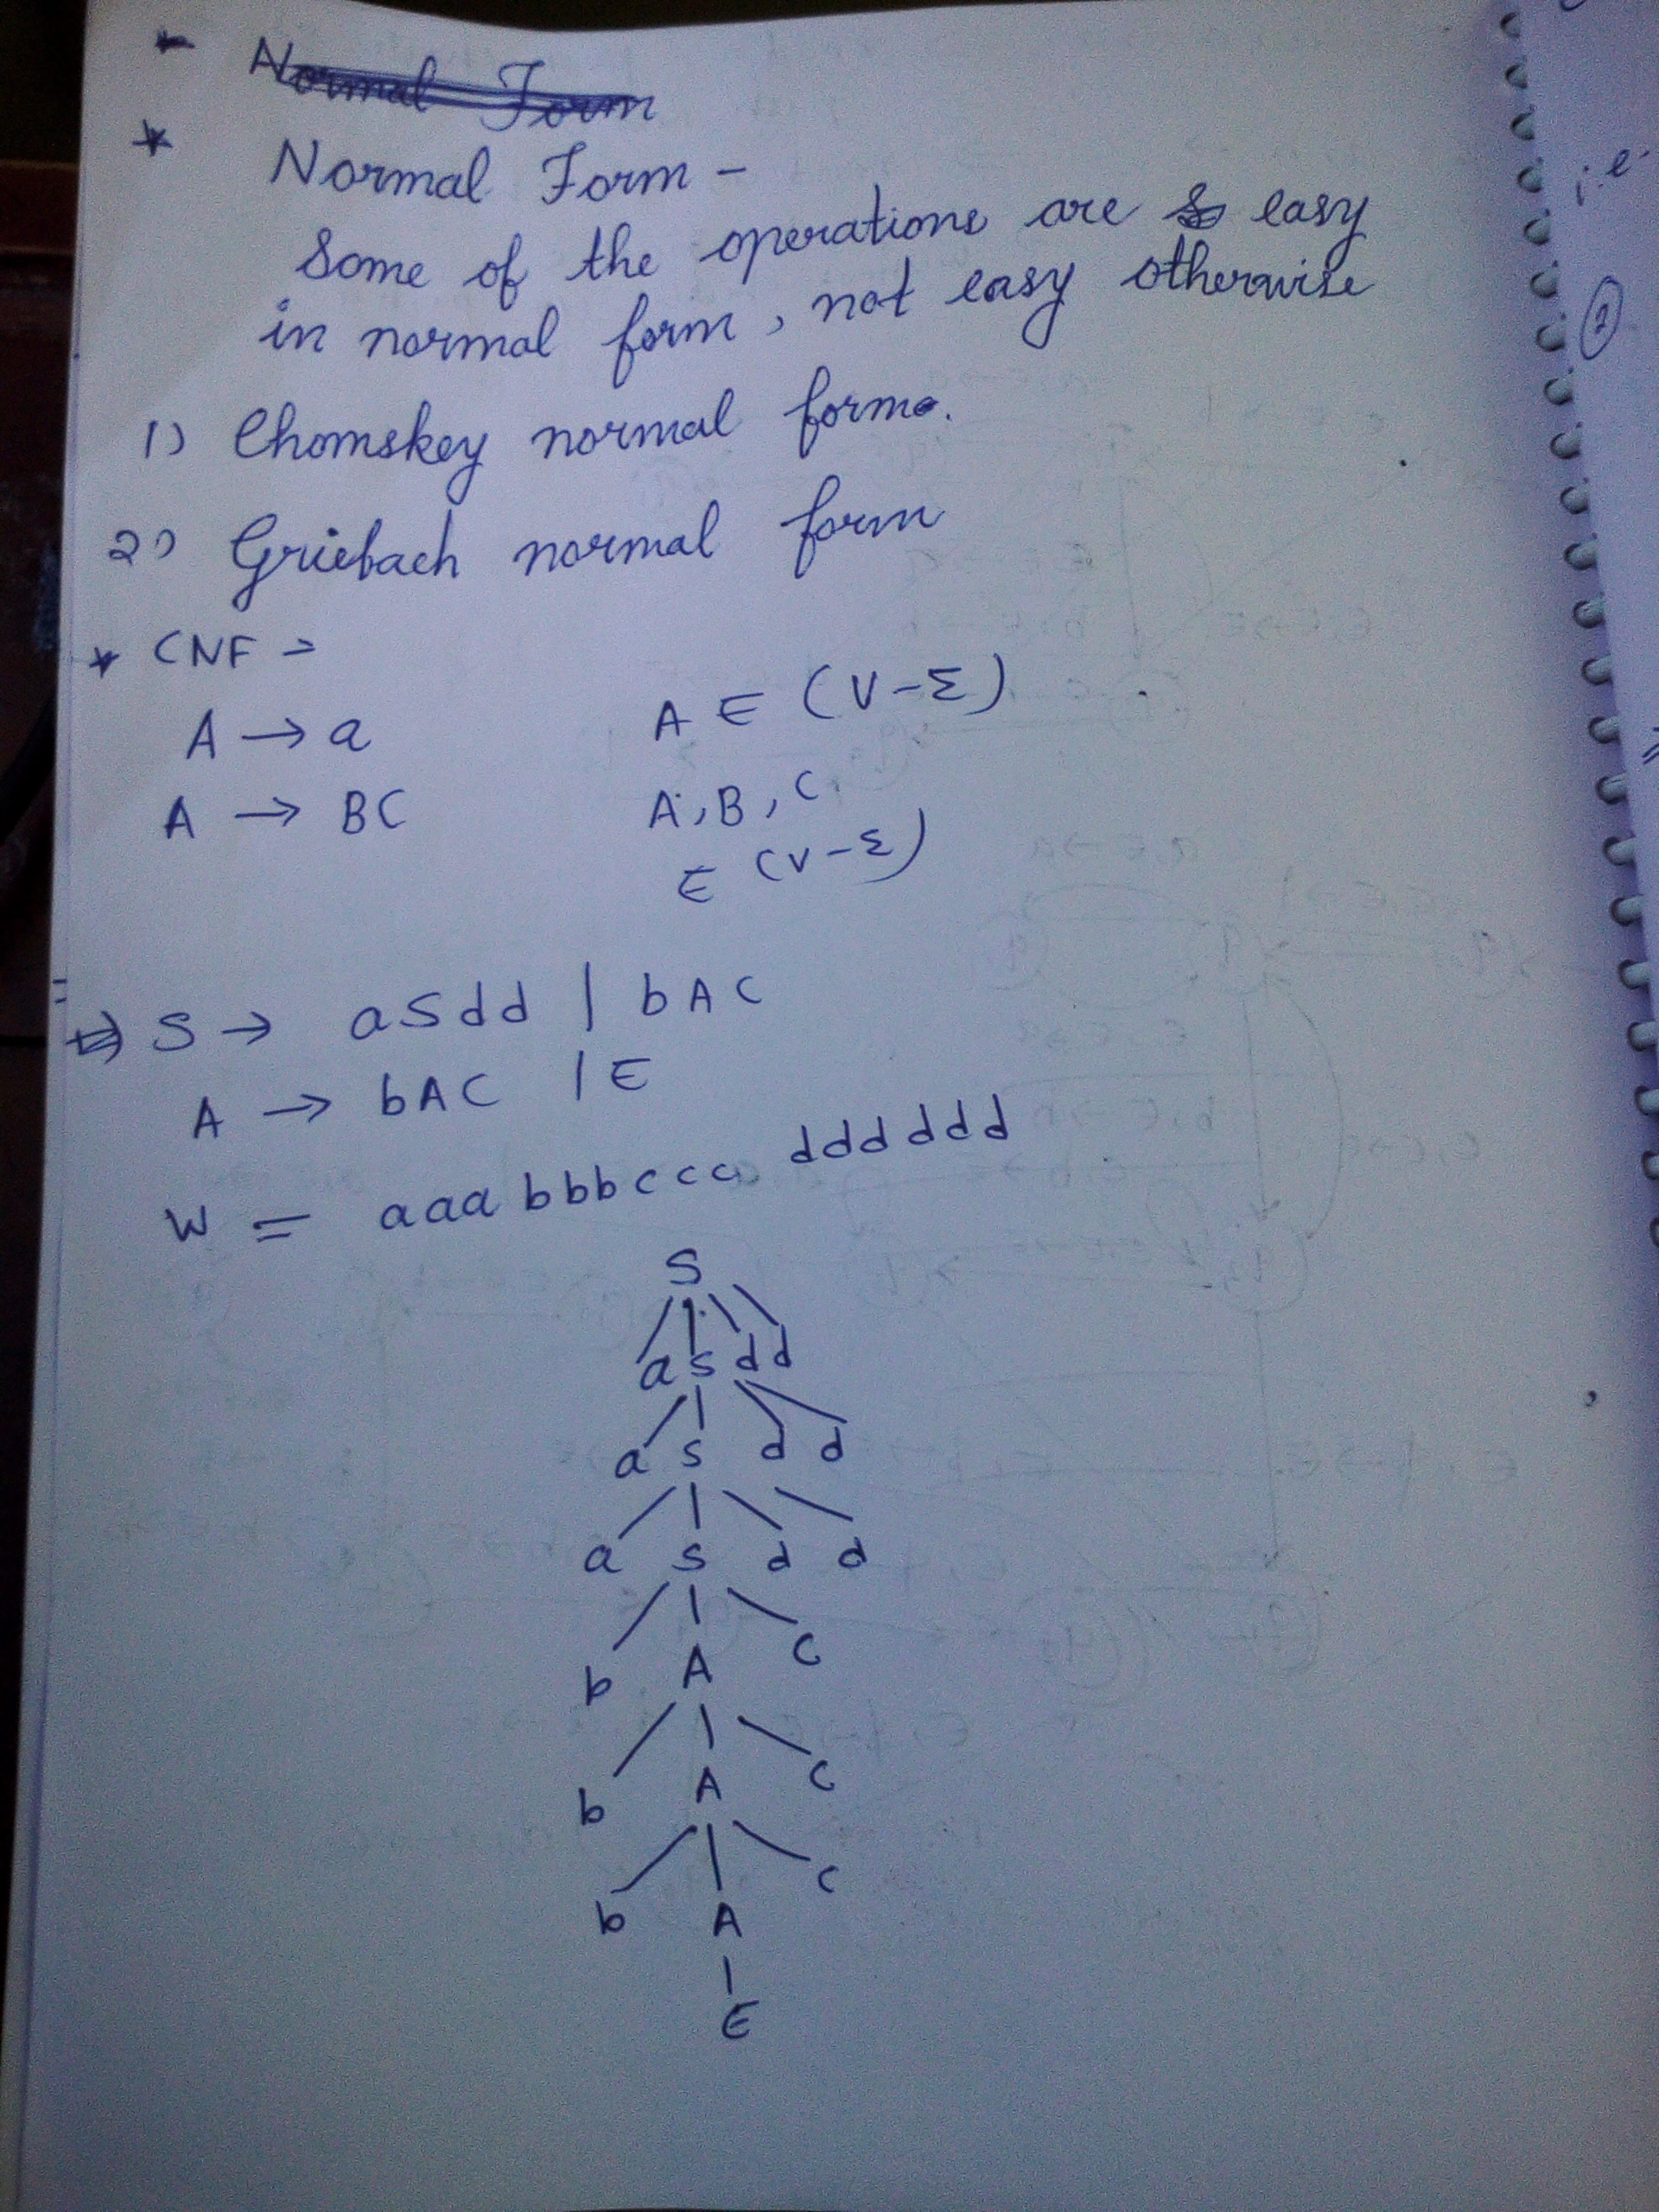 Normal Form
* Normal Form -
Some of the operations are easy
in normal form, not easy otherwise
1) Chomskey normal form.
2) Griebach normal form
* CNF ->
A → a A ∈ (V-Σ)
A → BC A, B, C
∈ (V-Σ)
⇒ S → aSdd | bAC
A → bAC | ∈
W = aaa bbbccc dddddd
S
a s d d
a s d d
a s d d
b A c
b A c
b A c
∈
i.e.
2